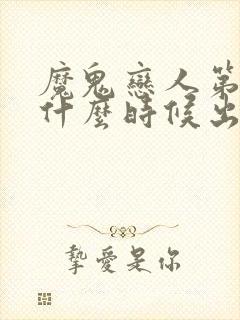 魔鬼戀人第
什麼時候出
摯愛是你